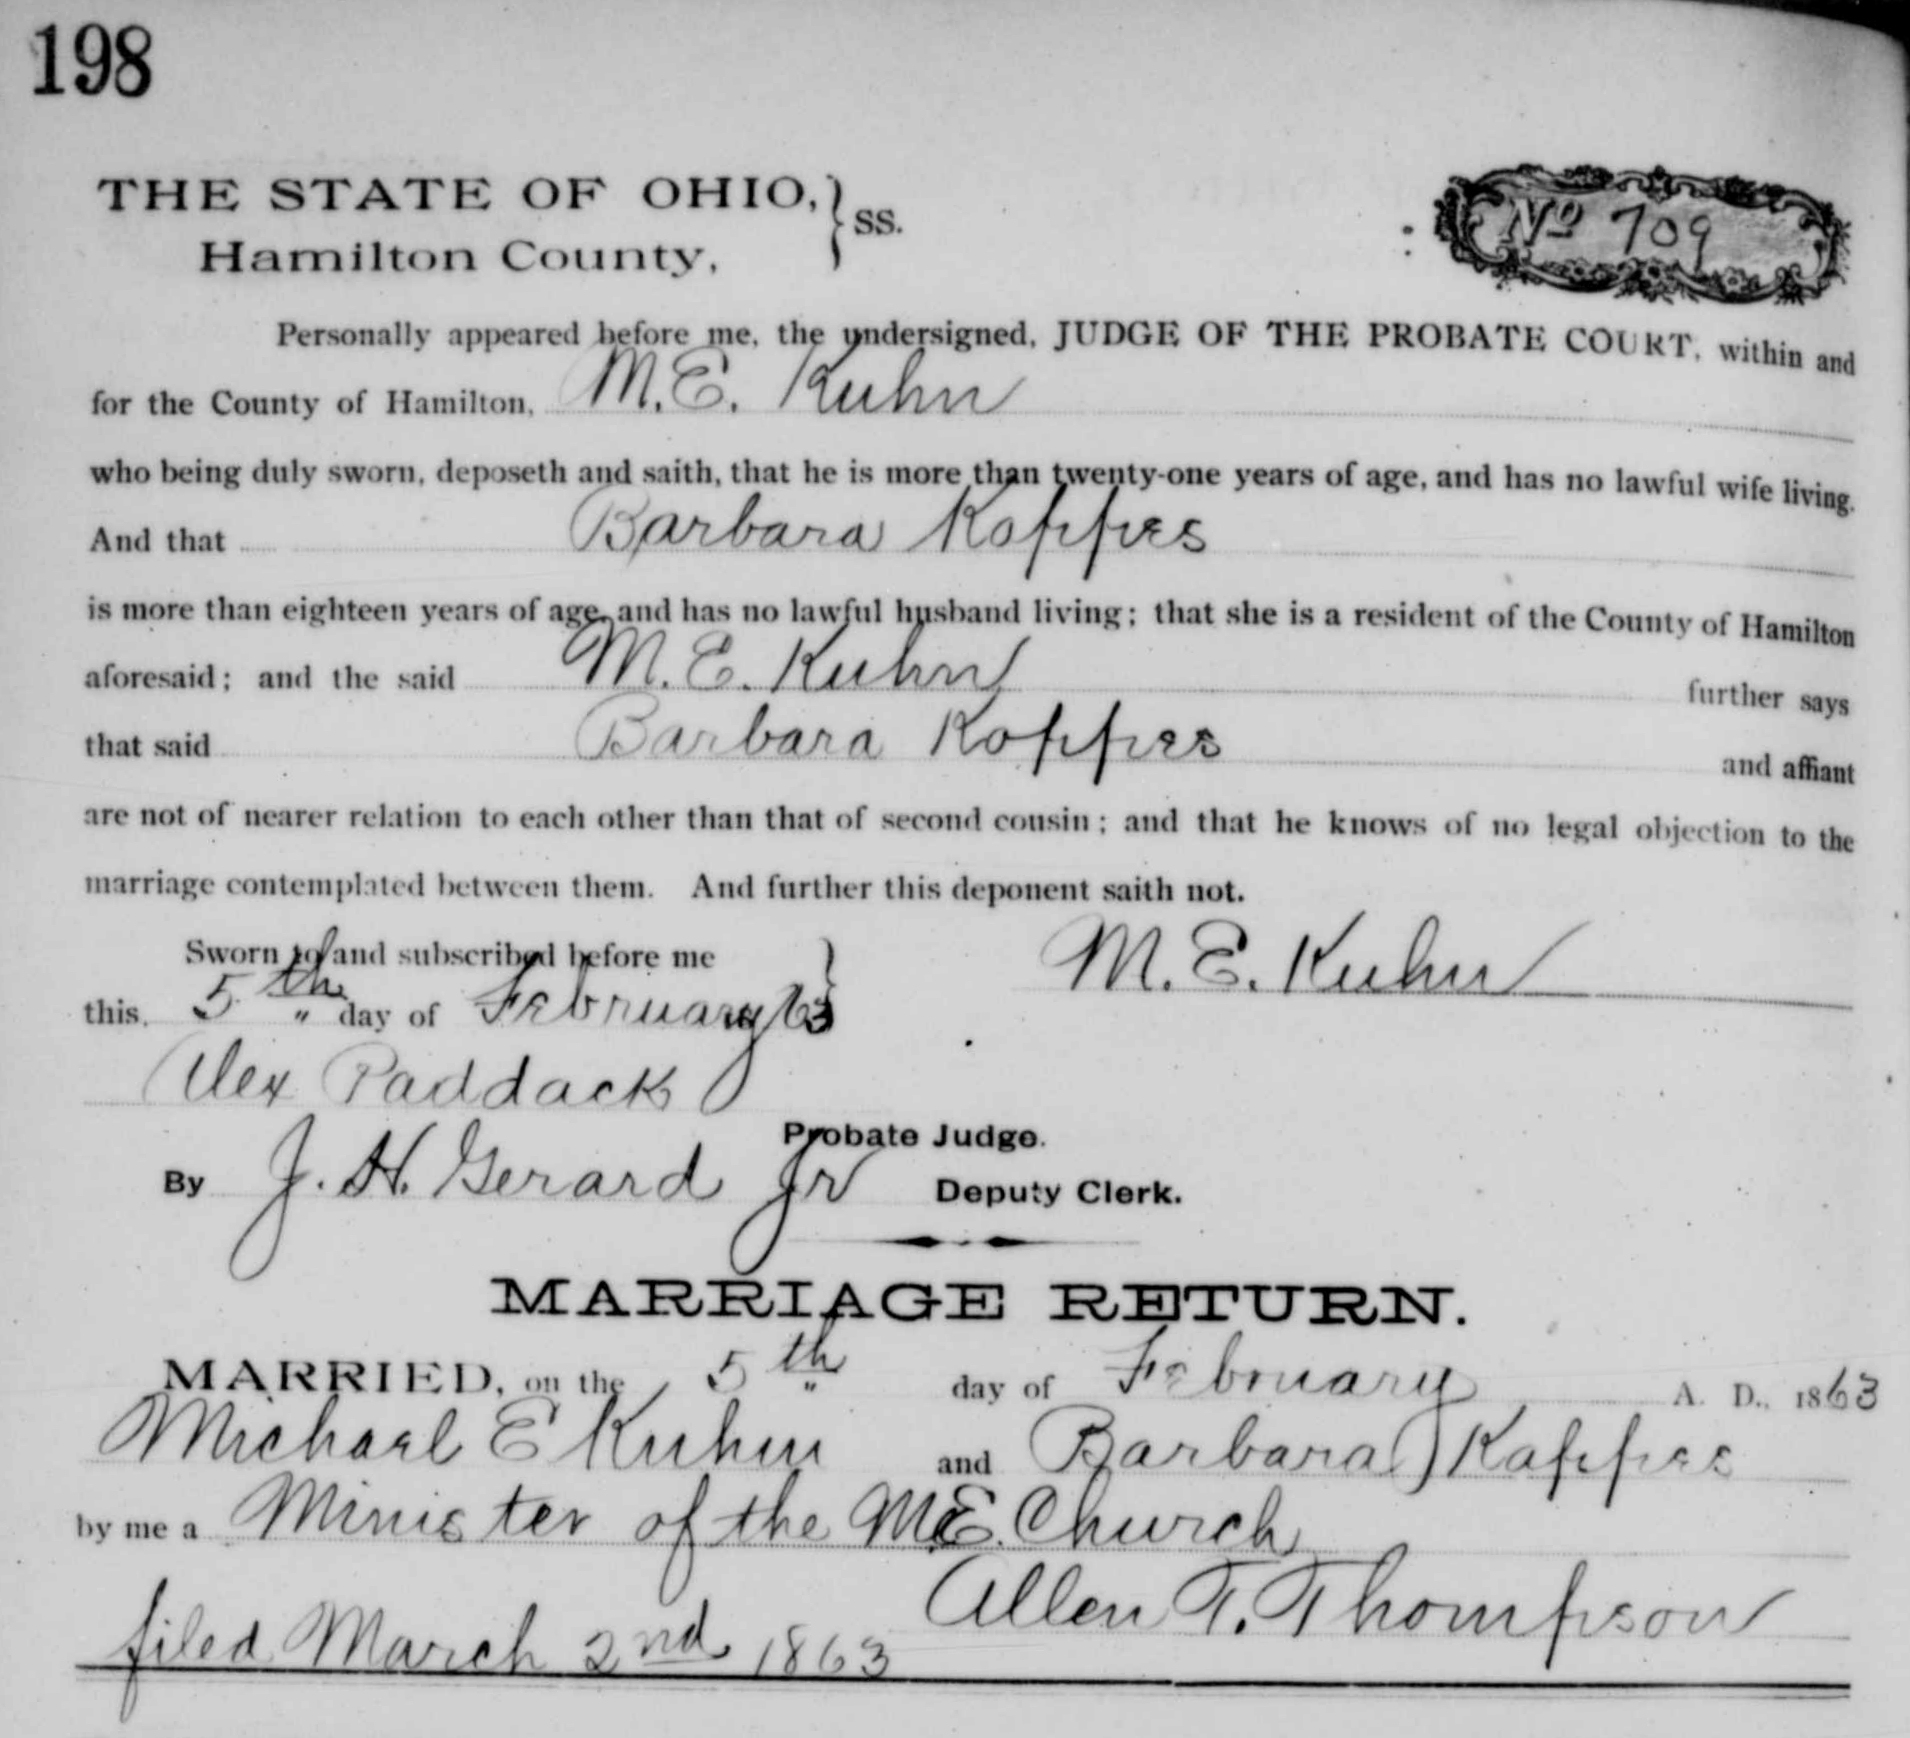 198
THE STATE OF OHIO, } SS.
Hamilton County,
Nº 709
Personally appeared before me, the undersigned, JUDGE OF THE PROBATE COURT, within and
for the County of Hamilton, M. E. Kuhn
who being duly sworn, deposeth and saith, that he is more than twenty-one years of age, and has no lawful wife living.
And that Barbara Koppes
is more than eighteen years of age, and has no lawful husband living; that she is a resident of the County of Hamilton
aforesaid; and the said M. E. Kuhn further says
that said Barbara Koppes and affiant
are not of nearer relation to each other than that of second cousin; and that he knows of no legal objection to the
marriage contemplated between them. And further this deponent saith not.
Sworn to and subscribed before me }
M. E. Kuhn
this, 5th " day of February 63
Alex Paddack
Probate Judge.
By J. H. Gerard Jr Deputy Clerk.
MARRIAGE RETURN.
MARRIED, on the 5th " day of February A. D., 1863
Michael E Kuhn and Barbara Kappes
by me a Minister of the M.E. Church
Allen T. Thompson
filed March 2nd 1863